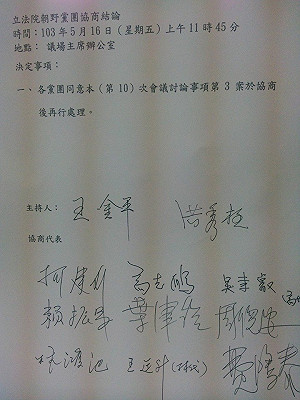 立法院朝野黨團協商結論
時間：103年5月16日（星期五）上午11時45分
地點： 議場主席辦公室
決定事項：
一、各黨團同意本（第10）次會議討論事項第3案於協商
後再行處理。
主持人： 王金平 洪秀柱
協商代表
柯建銘 高志鵬 吳秉叡
賴振昌 葉津鈴 周倪安
林鴻池 王進士（代） 費鴻泰